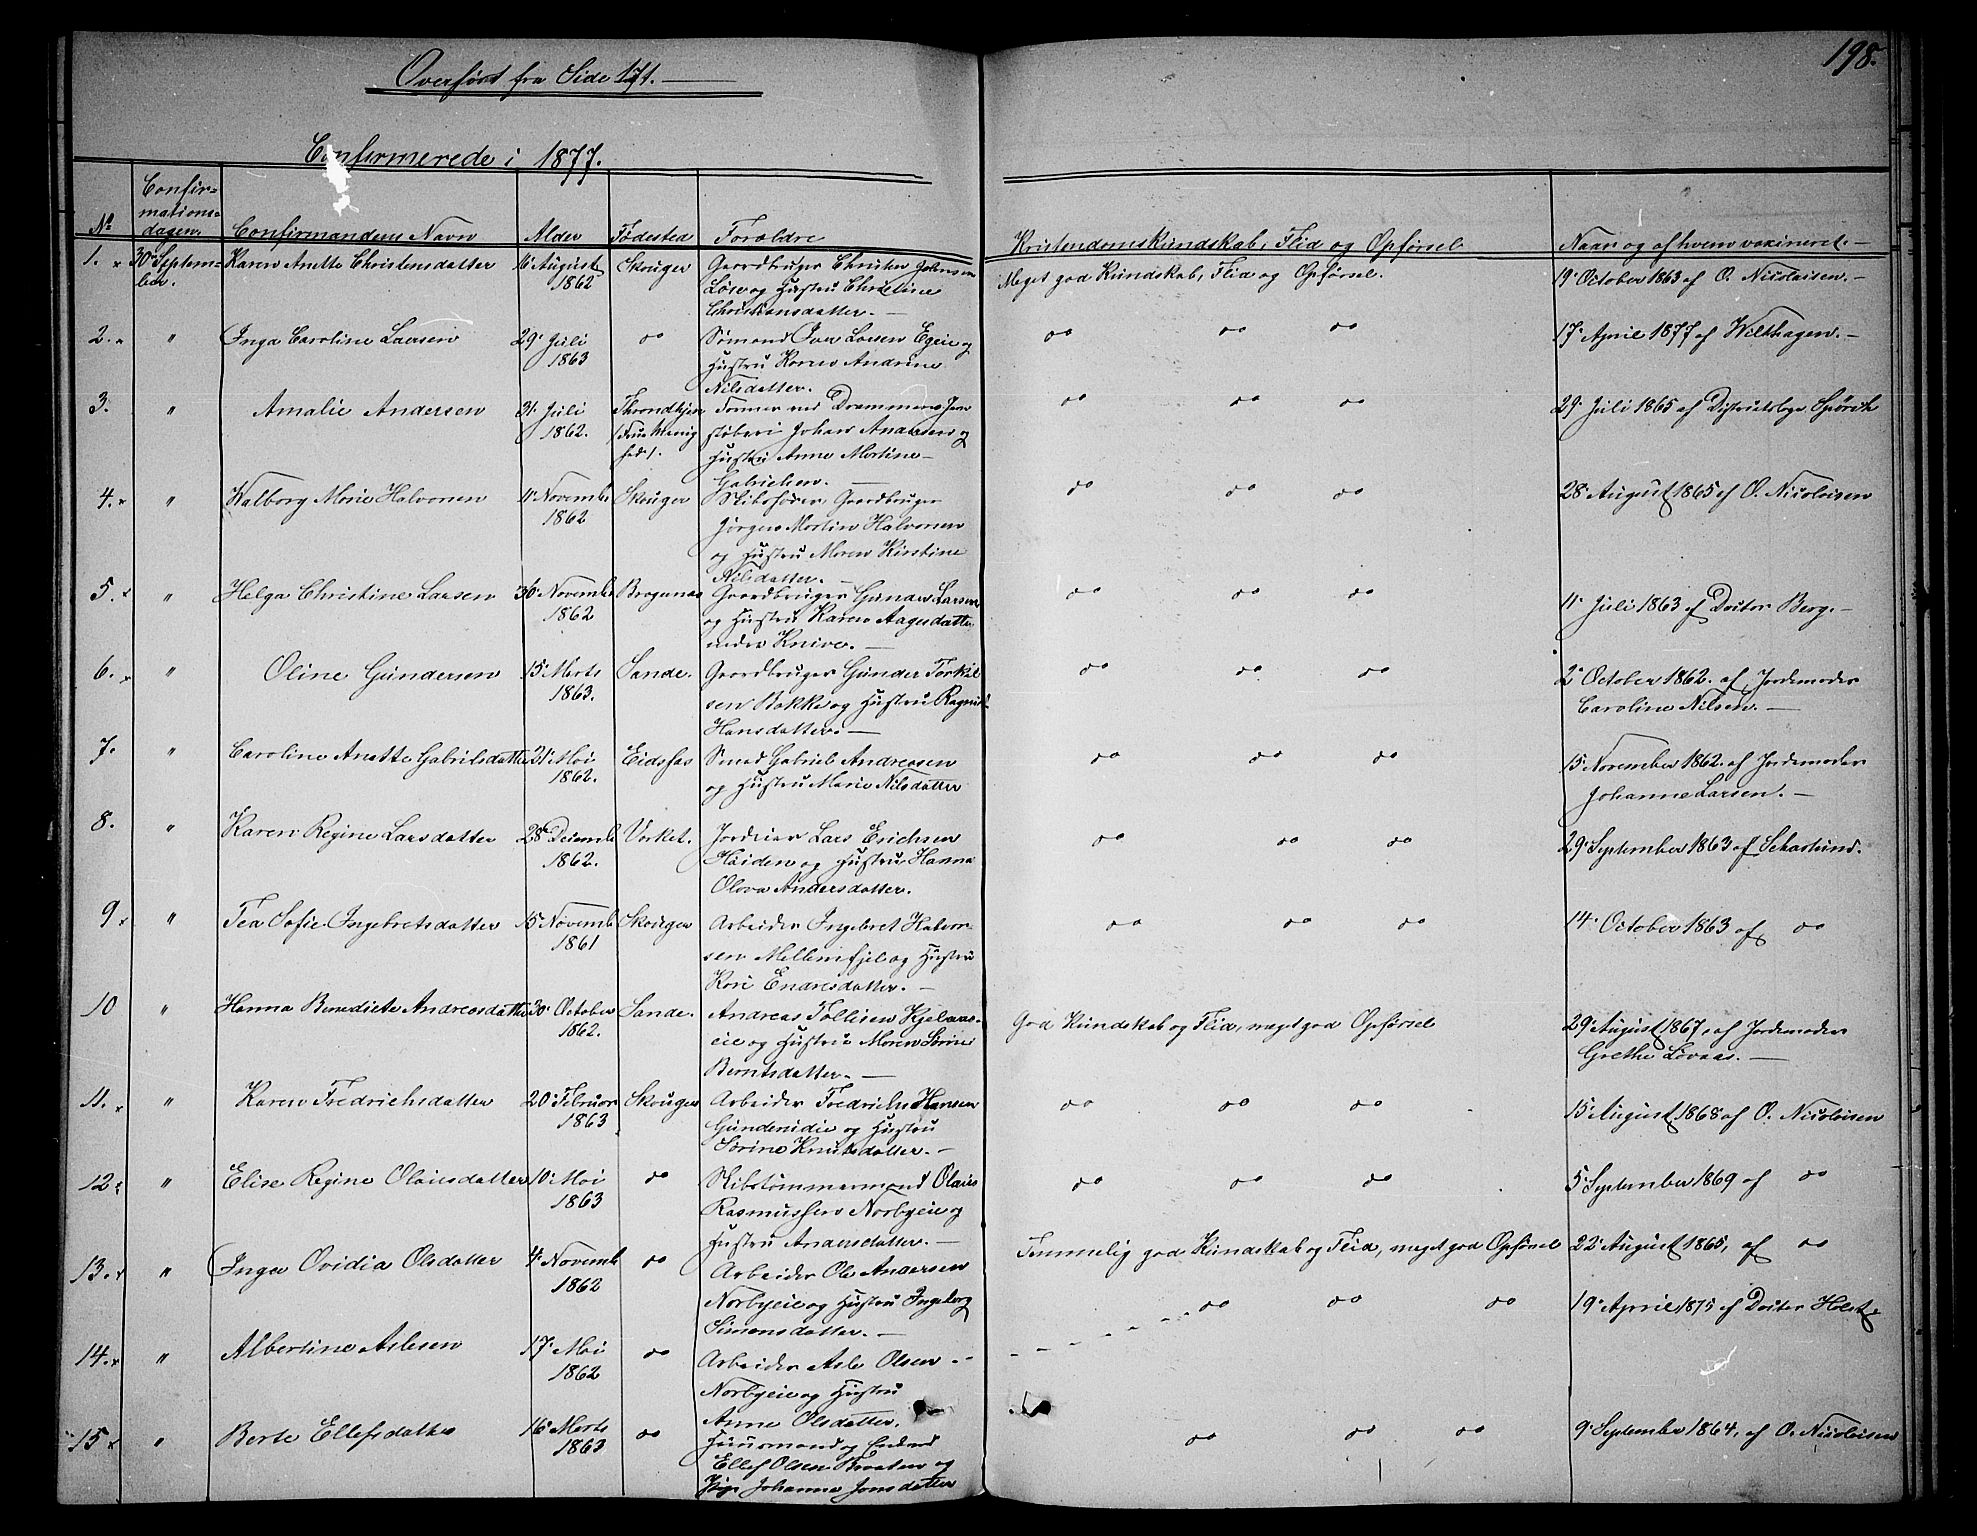 198.
Overført fra Side 171.
Confirmerede i 1877.
No
Confir=
mations=
dagen.
Confirmandens Navn
Alder
Fødested
Forældre
Kristendomskundskab, Flid og Opførsel
Naar og af hvem vaxineret.
1. 30 Septem= Karen Anette Christensdatter 16 August Skouger Gaardbruger Christen Johnsen Meget god Kundskab, Flid og Opførsel. 19 October 1863 af O. Nicolaisen.
ber. 1862 og Hustru Christine
Christiansdatter.
2. " Inga Caroline Larsen 29 Juli do Sømand Iver Larsen Egeie og do do do 17 April 1877 af Wilthagen.
1863 Hustru Karen Andrine
Nilsdatter.
3. " Amalie Andersen 31 Juli Throndhjem Former ved Drammens Jern do do do 29 Juli 1865 af Distriktslæge
1862. (Frue Menig støberi Johan Andersen og
hed). Hustru Anne Martine
Gabrielsen.
4. " Walborg Marie Halvorsen 11 Novemb. Skouger Skibsfører Gaardbruger do do do 28 August 1865 af O. Nicolaisen
1862 Jørgen Martin Halvorsen
og Hustru Maren Kirstine
Nilsdatter.
5. " Helga Christine Larsen 30 Novemb. Bragernæs Gaardbruger Gunder Larsen do do do 11 Juli 1863 af Doctor Berg.
1862 og Hustru Karen Aagesdatter
nedre Knive.
6. " Oline Gundersen 15 Marts Sande. Gaardbruger Gunder Torkil do do do 2 October 1862. af Jordemoder
1863. sen Bakke og Hustru Ragnild Caroline Nilsen.
Hansdatter.
7. " Caroline Anette Gabrielsdatter 31 Mai Eidsfos Smed Gabriel Andreasen do do do 15 November 1862. af Jordemoder
1862. og Hustru Marie Nilsdatter Johanne Larsen.
8. " Karen Regine Larsdatter 28 Decemb. Vivket. Jordeier Lars Erichsen do do do 29 September 1863 af
1862. Haiden og Hustru Hanna
Olava Andersdatter.
9 " Tea Sofie Ingebretsdatter 15 Novemb. Skouger Arbeider Ingebret do do do 14 October 1863 af do
1861 sen Mellemfjel og Hustru
Kari Endresdatter.
10 " Hanna Benedicte Andreasdatter 30 October Sande. Andreas Tollefsen Kjelaas= God Kundskab og Flid, meget god Opførsel 29 August 1867, af Jordemoder
1862. eie og Hustru Maren Sørine Grethe Livaas.
Berntsdatter.
11. " Karen Fredrichsdatter 20 Februar Skouger Arbeider Fredrich Hansen do do do 15 August 1868 af O. Nicolaisen
1863 og Hustru
Sørine Knutsdatter.
12 " Elise Regine Olausdatter 10 Mai do Skibstømmermand Olaus do do do 5 September 1869 af do
1863 Rasmussen Norbyeie og
Hustru Andersdatter.
13. " Inga Ovidia Olsdatter 4 Novemb. do Arbeider Ole Andersen Temmelig god Kundskab og Flid, meget god Opførsel 22 August 1865, af do
1862 Norbyeie og Hustru Ingeborg
Simensdatter.
14. " Albertine Aslesen 17 Mai do Arbeider Asle Olsen do do do 19 April 1875 af Doctor Holst
1862 Norbyeie og Hustru
Anne Olsdatter.
15 " Berte Ellefsdatter 16 Marts do Huusmand og do do do 9 September 1864, af O. Nicolaisen
1863 Ellef Olsen Braaten og
Pige Johanne Jonsdatter